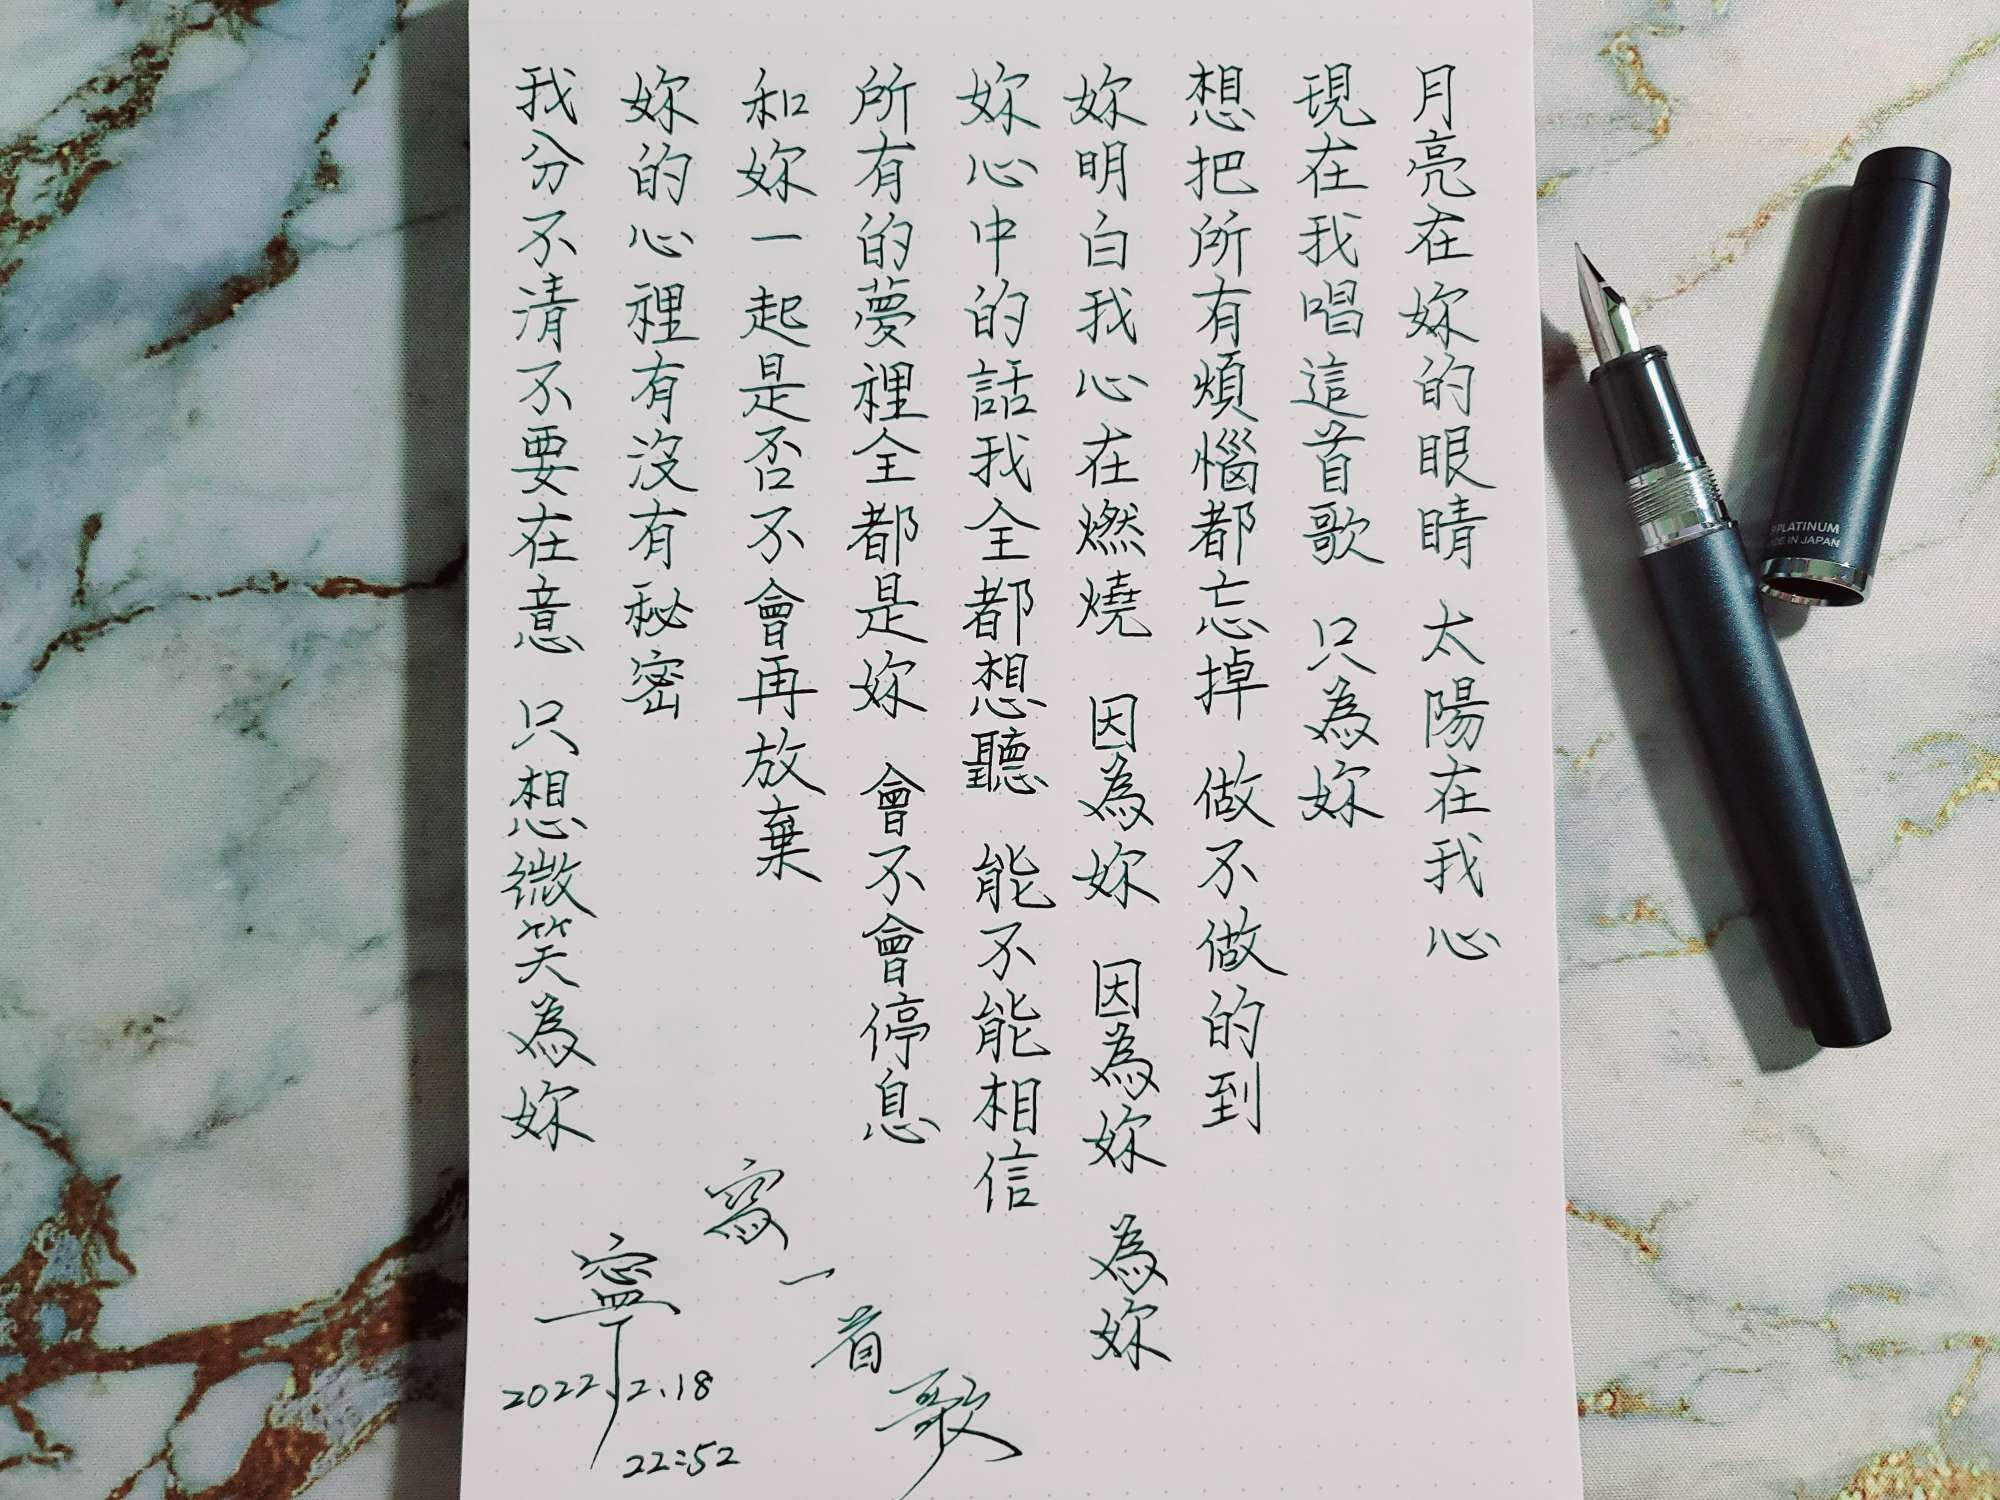 月亮在妳的眼睛 太陽在我心
現在我唱這首歌 只為妳
想把所有煩惱都忘掉 做不做的到
妳明白我心在燃燒 因為妳 因為妳 為妳
妳心中的話我全都想聽 能不能相信
所有的夢裡全都是妳 會不會停息
和妳一起是否不會再放棄
妳的心裡有沒有秘密
我分不清不要在意 只想微笑為妳
寫一首歌
寧
2022.2.18
22:52
PLATINUM
MADE IN JAPAN